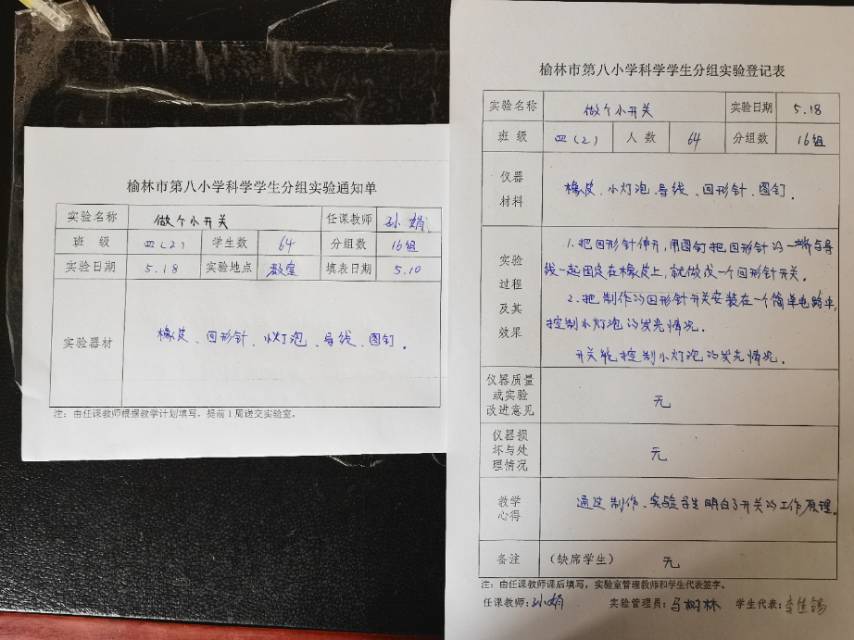 榆林市第八小学科学学生分组实验通知单
实验名称 做个小开关 任课教师 孙娟
班 级 四(2) 学生数 64 分组数 16组
实验日期 5.18 实验地点 教室 填表日期 5.10
实验器材 橡皮、回形针、小灯泡、导线、图钉。
注：由任课教师根据教学计划填写，提前1周送交实验室。
榆林市第八小学科学学生分组实验登记表
实验名称 做个小开关 实验日期 5.18
班 级 四(2) 人 数 64 分组数 16组
仪器
材料
橡皮、小灯泡、导线、回形针、图钉。
实验
过程
及其
效果
1.把回形针伸开,用图钉把回形针的一端与导
线一起固定在橡皮上,就做成一个回形针开关。
2.把制作的回形针开关安装在一个简单电路中,
控制小灯泡的发光情况。
开关能控制小灯泡的发光情况。
仪器质量
或实验
改进意见
无
仪器损
坏与处
理情况
无
教学
心得
通过制作、实验学生明白了开关的工作原理。
备注 (缺席学生) 无
注：由任课教师课后填写，实验室管理教师和学生代表签字。
任课教师：孙娟 实验管理员：马树林 学生代表：